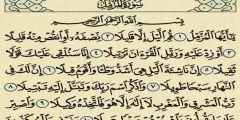 سُورَةُ الْمُزَّمِّلِ
بِسْمِ اللَّهِ الرَّحْمَٰنِ الرَّحِيمِ
يَا أَيُّهَا الْمُزَّمِّلُ ۝١ قُمِ اللَّيْلَ إِلَّا قَلِيلًا ۝٢ نِصْفَهُ أَوِ انْقُصْ مِنْهُ قَلِيلًا
۝٣ أَوْ زِدْ عَلَيْهِ وَرَتِّلِ الْقُرْآنَ تَرْتِيلًا ۝٤ إِنَّا سَنُلْقِي عَلَيْكَ قَوْلًا
ثَقِيلًا ۝٥ إِنَّ نَاشِئَةَ اللَّيْلِ هِيَ أَشَدُّ وَطْئًا وَأَقْوَمُ قِيلًا ۝٦ إِنَّ لَكَ فِي
النَّهَارِ سَبْحًا طَوِيلًا ۝٧ وَاذْكُرِ اسْمَ رَبِّكَ وَتَبَتَّلْ إِلَيْهِ تَبْتِيلًا ۝٨
رَبُّ الْمَشْرِقِ وَالْمَغْرِبِ لَا إِلَٰهَ إِلَّا هُوَ فَاتَّخِذْهُ وَكِيلًا ۝٩ وَاصْبِرْ